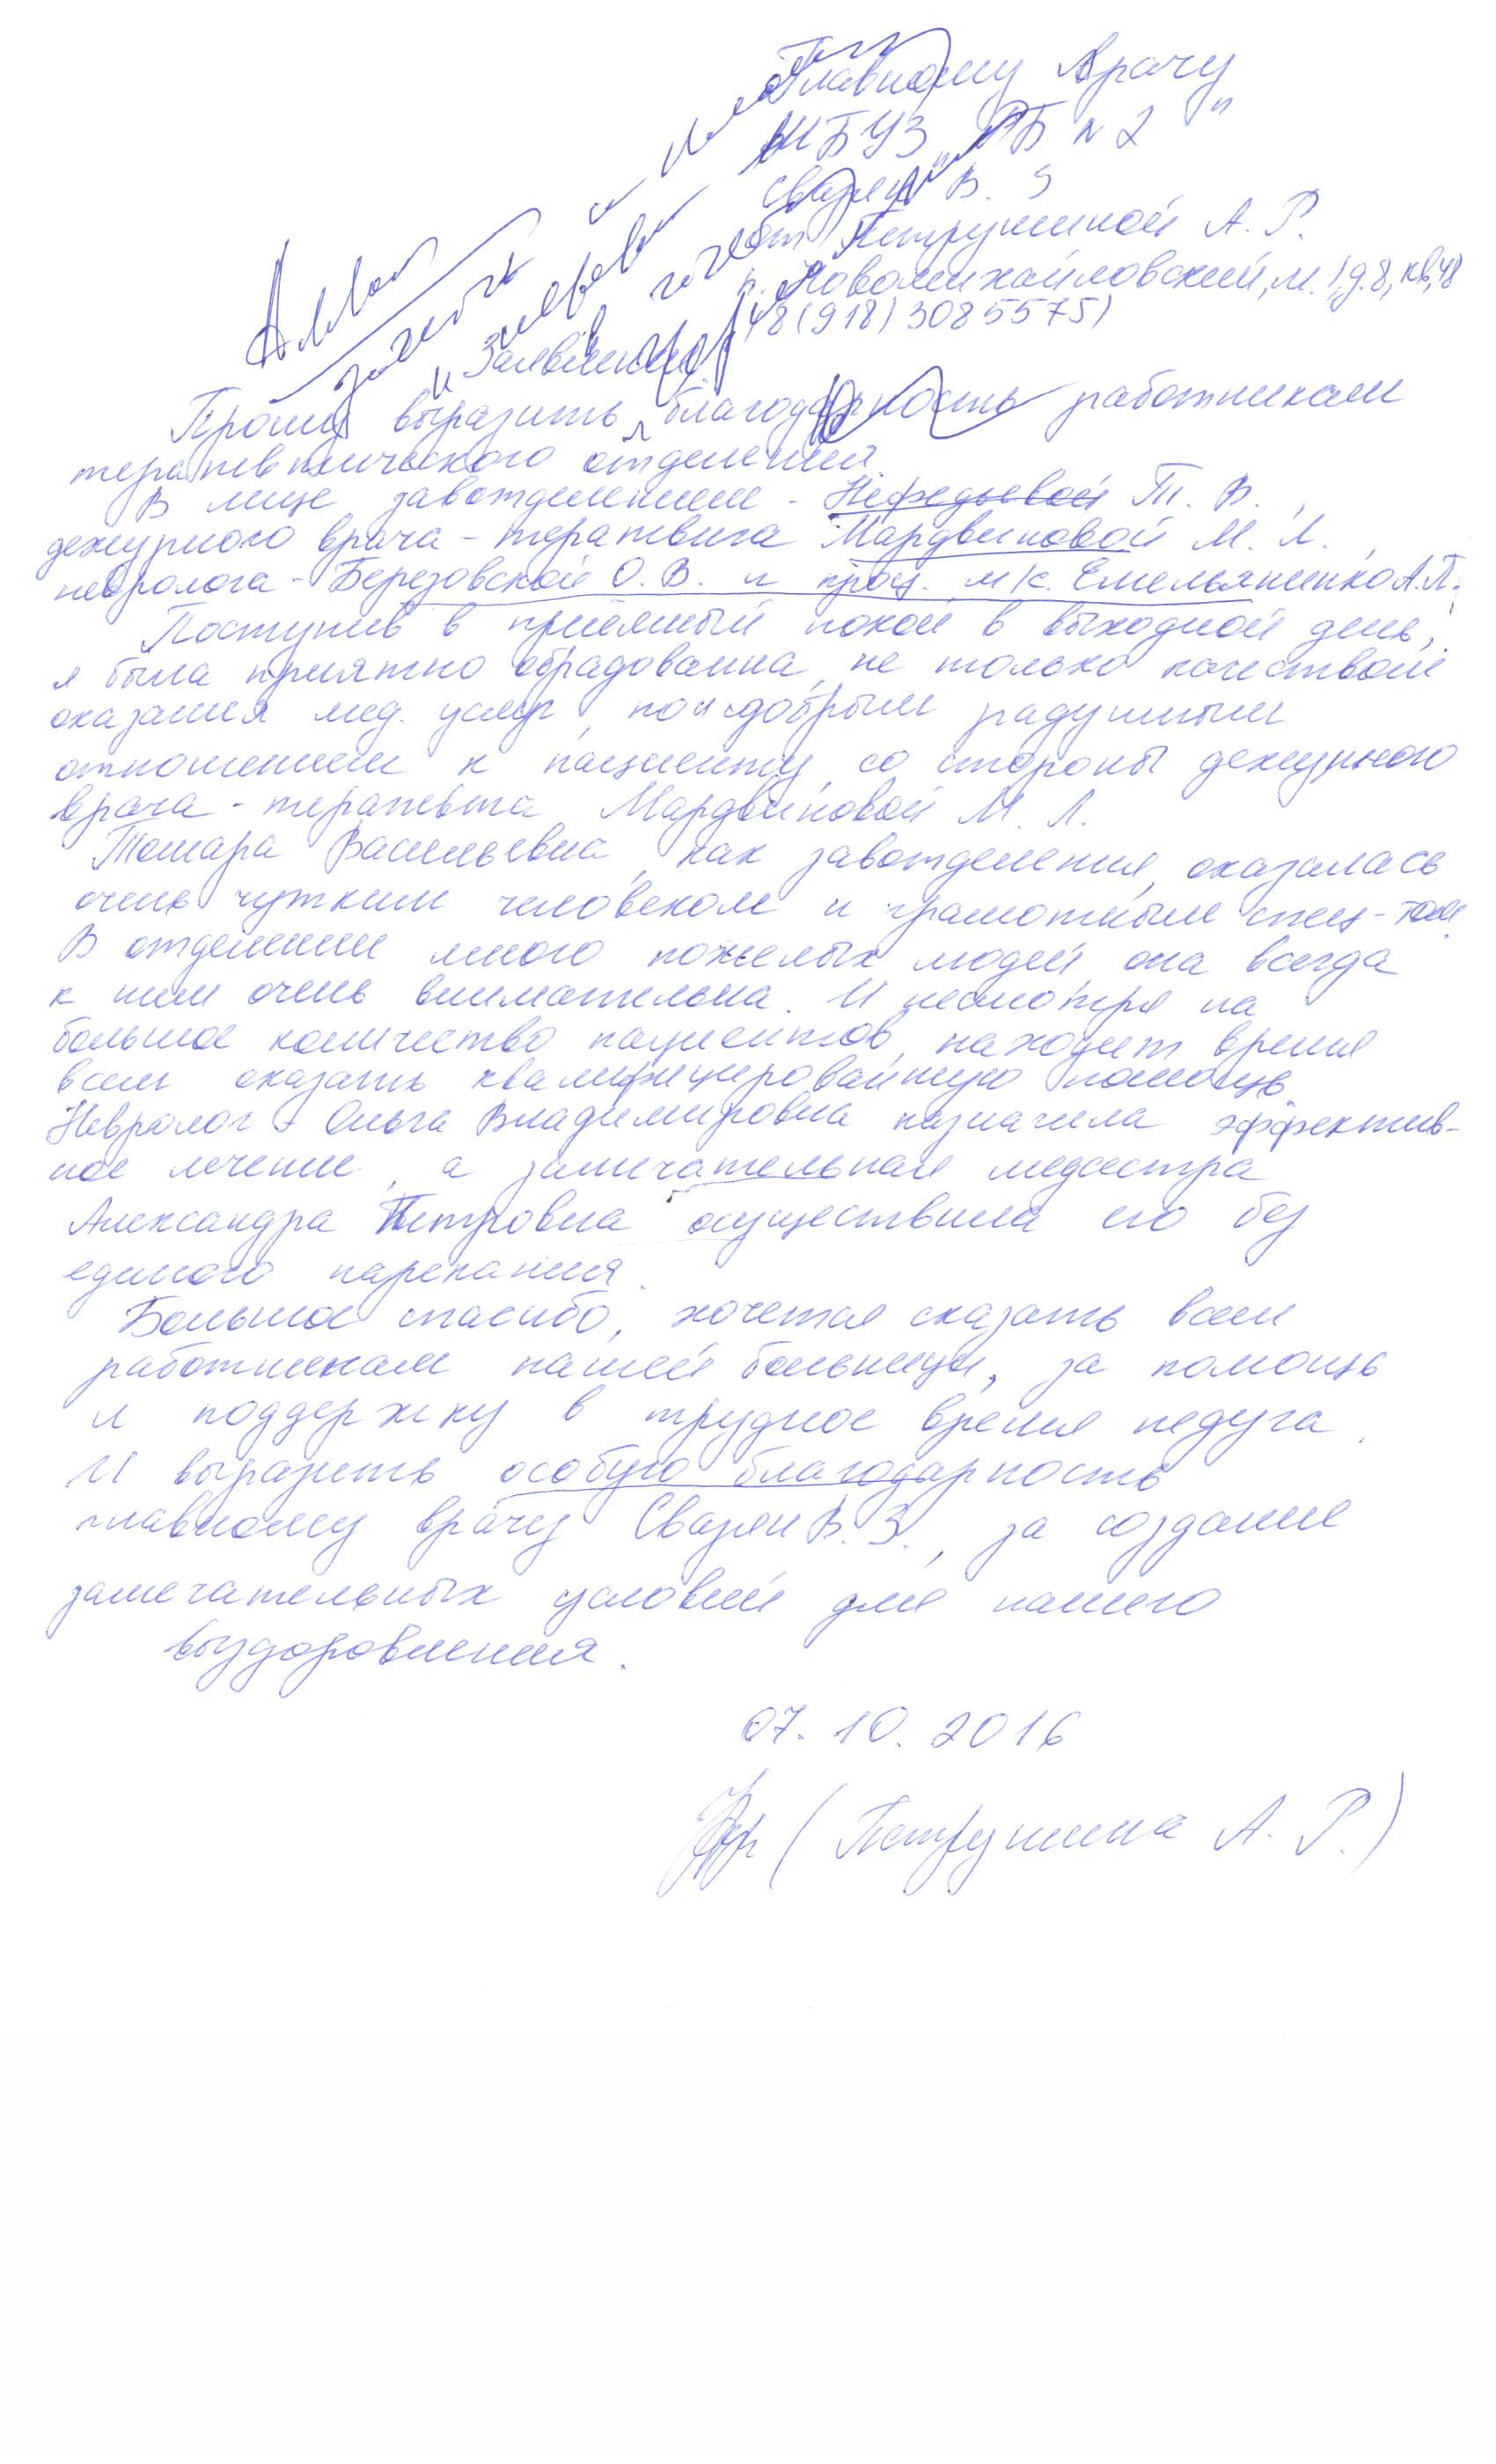 Главному врачу
МБУЗ „РБ № 2"
Свазян В. З
от Петрушиной А. Р.
п. Новомихайловский, м. 1, д. 8, кв. 48
8(918)3085575)
Заявление
Прошу выразить благодарность работникам
терапевтического отделения.
В лице завотделением - Нефедьевой Т. В.,
дежурного врача - терапевта Мардвиновой М. Л.,
невролога - Березовской О. В. и проц. м/с. Емельяненко А.П.
Поступив в приёмный покой в выходной день,
я была приятно обрадованна, не только качеством
оказания мед. услуг, но и добрым радушным
отношением к пациенту, со стороны дежурного
врача - терапевта Мардвиновой М. Л.
Тамара Васильевна, как завотделения, оказалась
очень чутким человеком и грамотным спец-том.
В отделении много пожелых людей, она всегда
к ним очень внимательна. И несмотря на
большое количество пациентов, находит время
всем оказать квалифицированную помощь.
Невролог Ольга Владимировна назначила эффектив-
ное лечение, а замечательная медсестра
Александра Петровна осуществила его без
единого нарекания.
Большое спасибо, хочется сказать всем
работникам нашей больницы, за помощь
и поддержку в трудное время недуга.
И выразить особую благодарность
главному врачу Свазян В. З., за создание
замечательных условий для нашего
выздоровления.
07. 10. 2016
(Петрушина А. Р.)